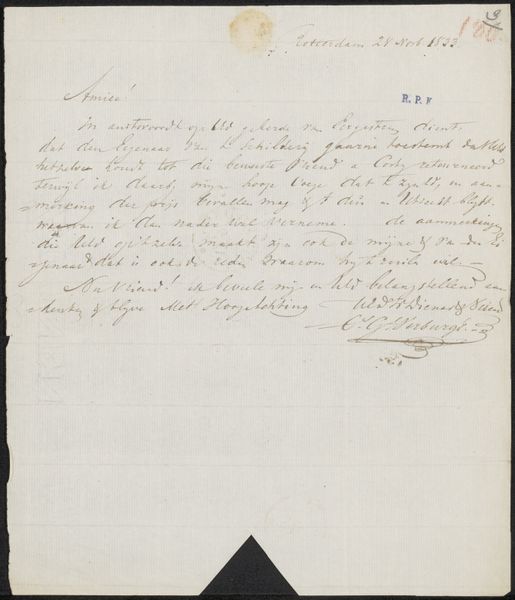 Rotterdam 28 Nov 1833
Amice!
In antwoordt op Ud geëerde van Eergisteren dient
dat den Eigenaar van 't Schilderij gaarne toestemt
houdt tot die bewuste Vriend a Costy retourneerd
terwijl ik daarbij mijn hoop voege dat 't zyn Ed, in aan-
merking der prijs bevallen mag & 't dus in Utrecht blijft
waarvan ik dan nader wel verneme de aanmerkingen
die Ued op 't maakt zijn ook de mijne & van den Ei
genaar dat is ook de reden waarom hij 't wil
Nu Vriend! ik beveele mij in Ued belangstellend aan
denken & blijve Met Hoogachting
Ued Dienaar & Vriend
Cs. Gs. Verburgh
R.P.K